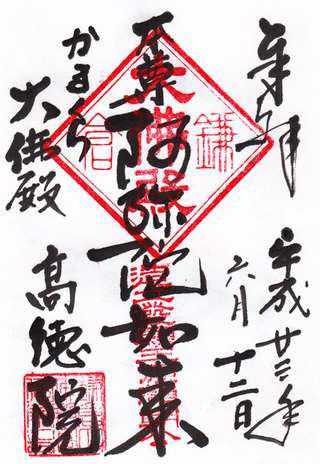 奉拝
平成廿三年
六月十二日
本尊
阿弥陀如来
かまくら
大佛殿
高徳院
鎌
倉